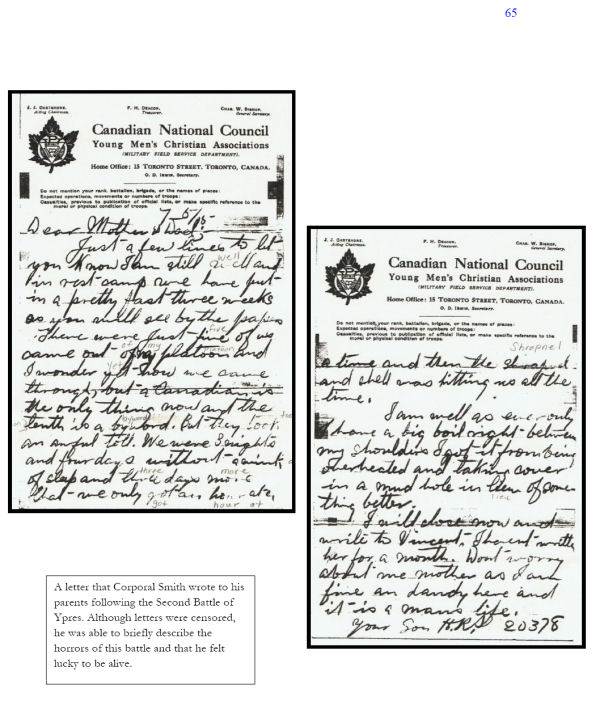 65
J. J. GARTSHORE, F. H. DEACON, CHAS. W. BISHOP,
Acting Chairman. Treasurer. General Secretary.
Canadian National Council
Young Men's Christian Associations
(MILITARY FIELD SERVICE DEPARTMENT).
Home Office: 15 TORONTO STREET, TORONTO, CANADA.
O. D. IRWIN, Secretary.
Do not mention your rank, battalion, brigade, or the names of places:
Expected operations, movements or numbers of troops:
Casualties, previous to publication of official lists, or make specific reference to the
moral or physical condition of troops.
7-5/15-
Dear Mother & Dad:
Just a few lines to let
well
you know I am still well and
in rest camp we have put
in a pretty fast three weeks
as you will see by the papers
five
There were just five of us
of my platoon
came out of my platoon and
yet
I wonder yet how we came
through, but a Canadian is
the only thing now and the
byword
tenth is a byword. But they took
an awful toll. We were 3 nights
and four days without a wink
three more
of sleep and three days more
that we only got an hour at
got hour at
J. J. GARTSHORE, F. H. DEACON, CHAS. W. BISHOP,
Acting Chairman. Treasurer. General Secretary.
Canadian National Council
Young Men's Christian Associations
(MILITARY FIELD SERVICE DEPARTMENT).
Home Office: 15 TORONTO STREET, TORONTO, CANADA.
O. D. IRWIN, Secretary.
Do not mention your rank, battalion, brigade, or the names of places:
Expected operations, movements or numbers of troops:
Casualties, previous to publication of official lists, or make specific reference to the
moral or physical condition of troops.
Shrapnel
a time and then the shrapnel
and shell was hitting us all the
time.
I am well as ever only
I have a big boil right between
my shoulders I got it from being
overheated and taking cover
in a mud hole in lieu of some
lieu
thing better.
I will close now and
write to Vincent, I havent written
her for a month. Dont worry
about me mother as I am
fine an dandy here and
it is a mans life.
Your Son H.R.S 20378
A letter that Corporal Smith wrote to his
parents following the Second Battle of
Ypres. Although letters were censored,
he was able to briefly describe the
horrors of this battle and that he felt
lucky to be alive.